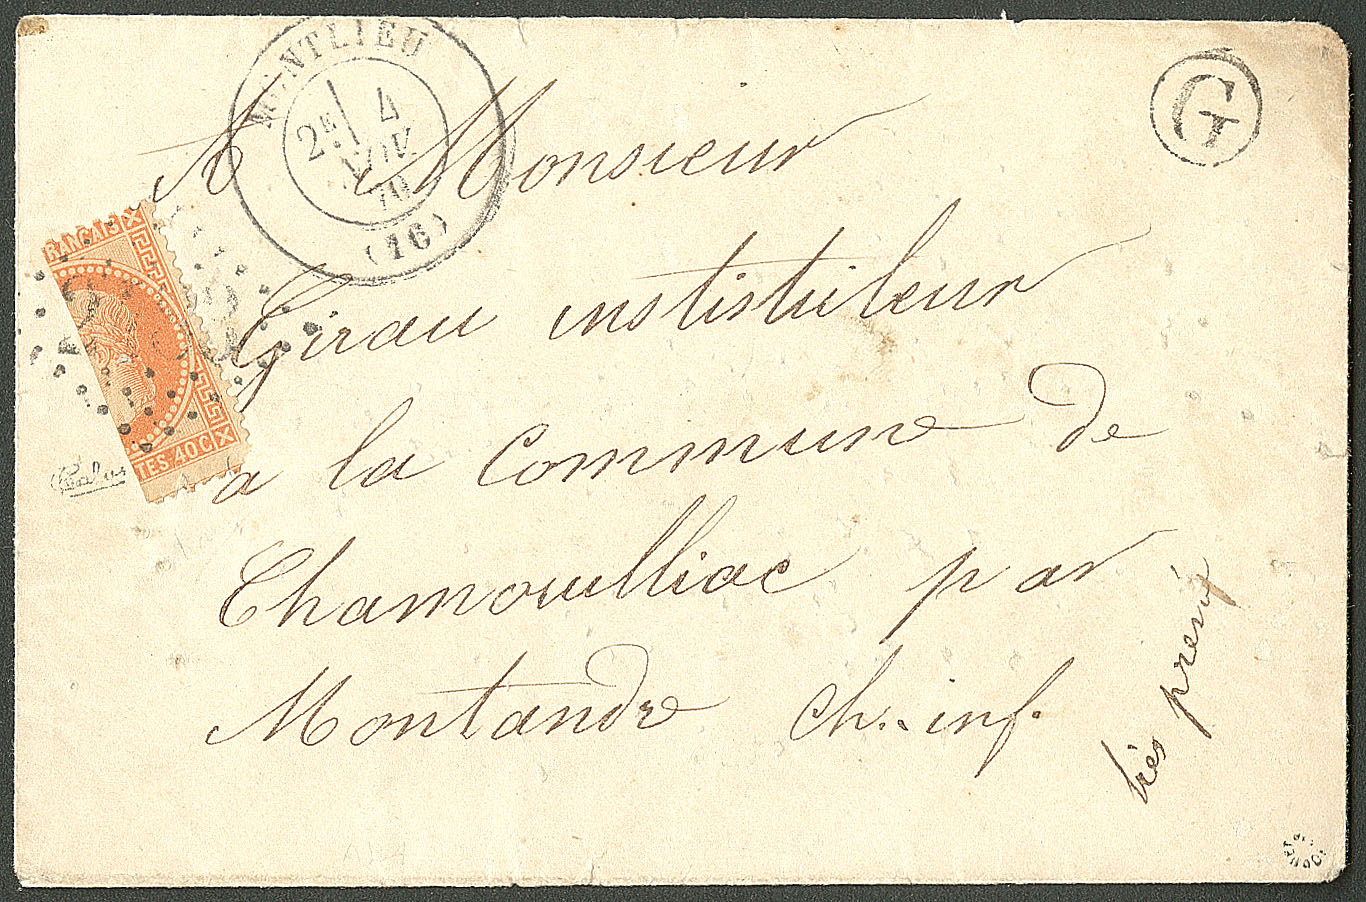 MONTLIEU
2E
4
NOV
70
(16)
G
A Monsieur
RANÇAIS
Girau instistuleur
TES. 40 C.
a la commune de
Chamouilliac par
Montandre ch. inf.
très pressé